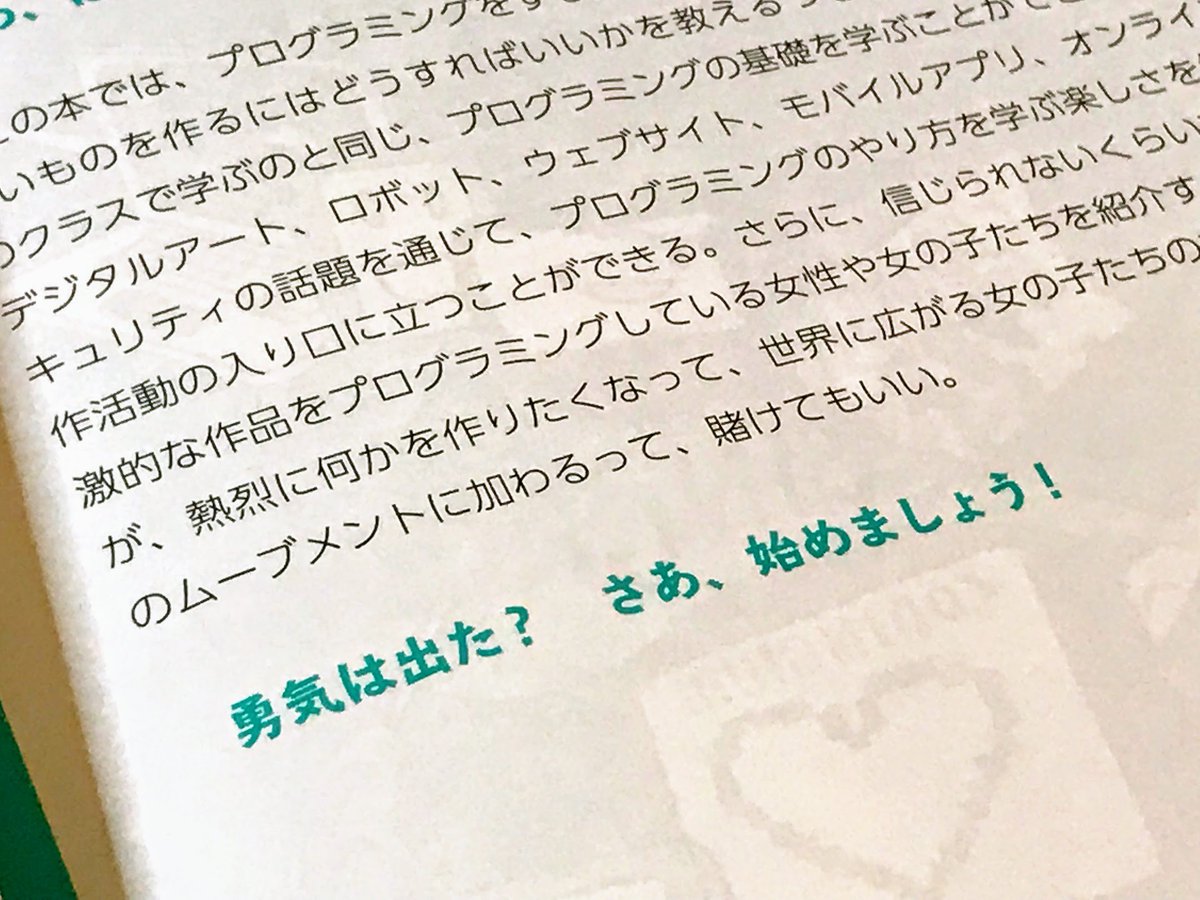 の本では、プログラミングをす
いものを作るにはどうすればいいかを教える
クラスで学ぶのと同じ、プログラミングの基礎を学ぶことがで
デジタルアート、ロボット、ウェブサイト、モバイルアプリ、オンライ
キュリティの話題を通じて、プログラミングのやり方を学ぶ楽しさを
作活動の入り口に立つことができる。さらに、信じられないくらい
激的な作品をプログラミングしている女性や女の子たちを紹介す
が、熱烈に何かを作りたくなって、世界に広がる女の子たちの
のムーブメントに加わるって、賭けてもいい。
勇気は出た？　さあ、始めましょう！